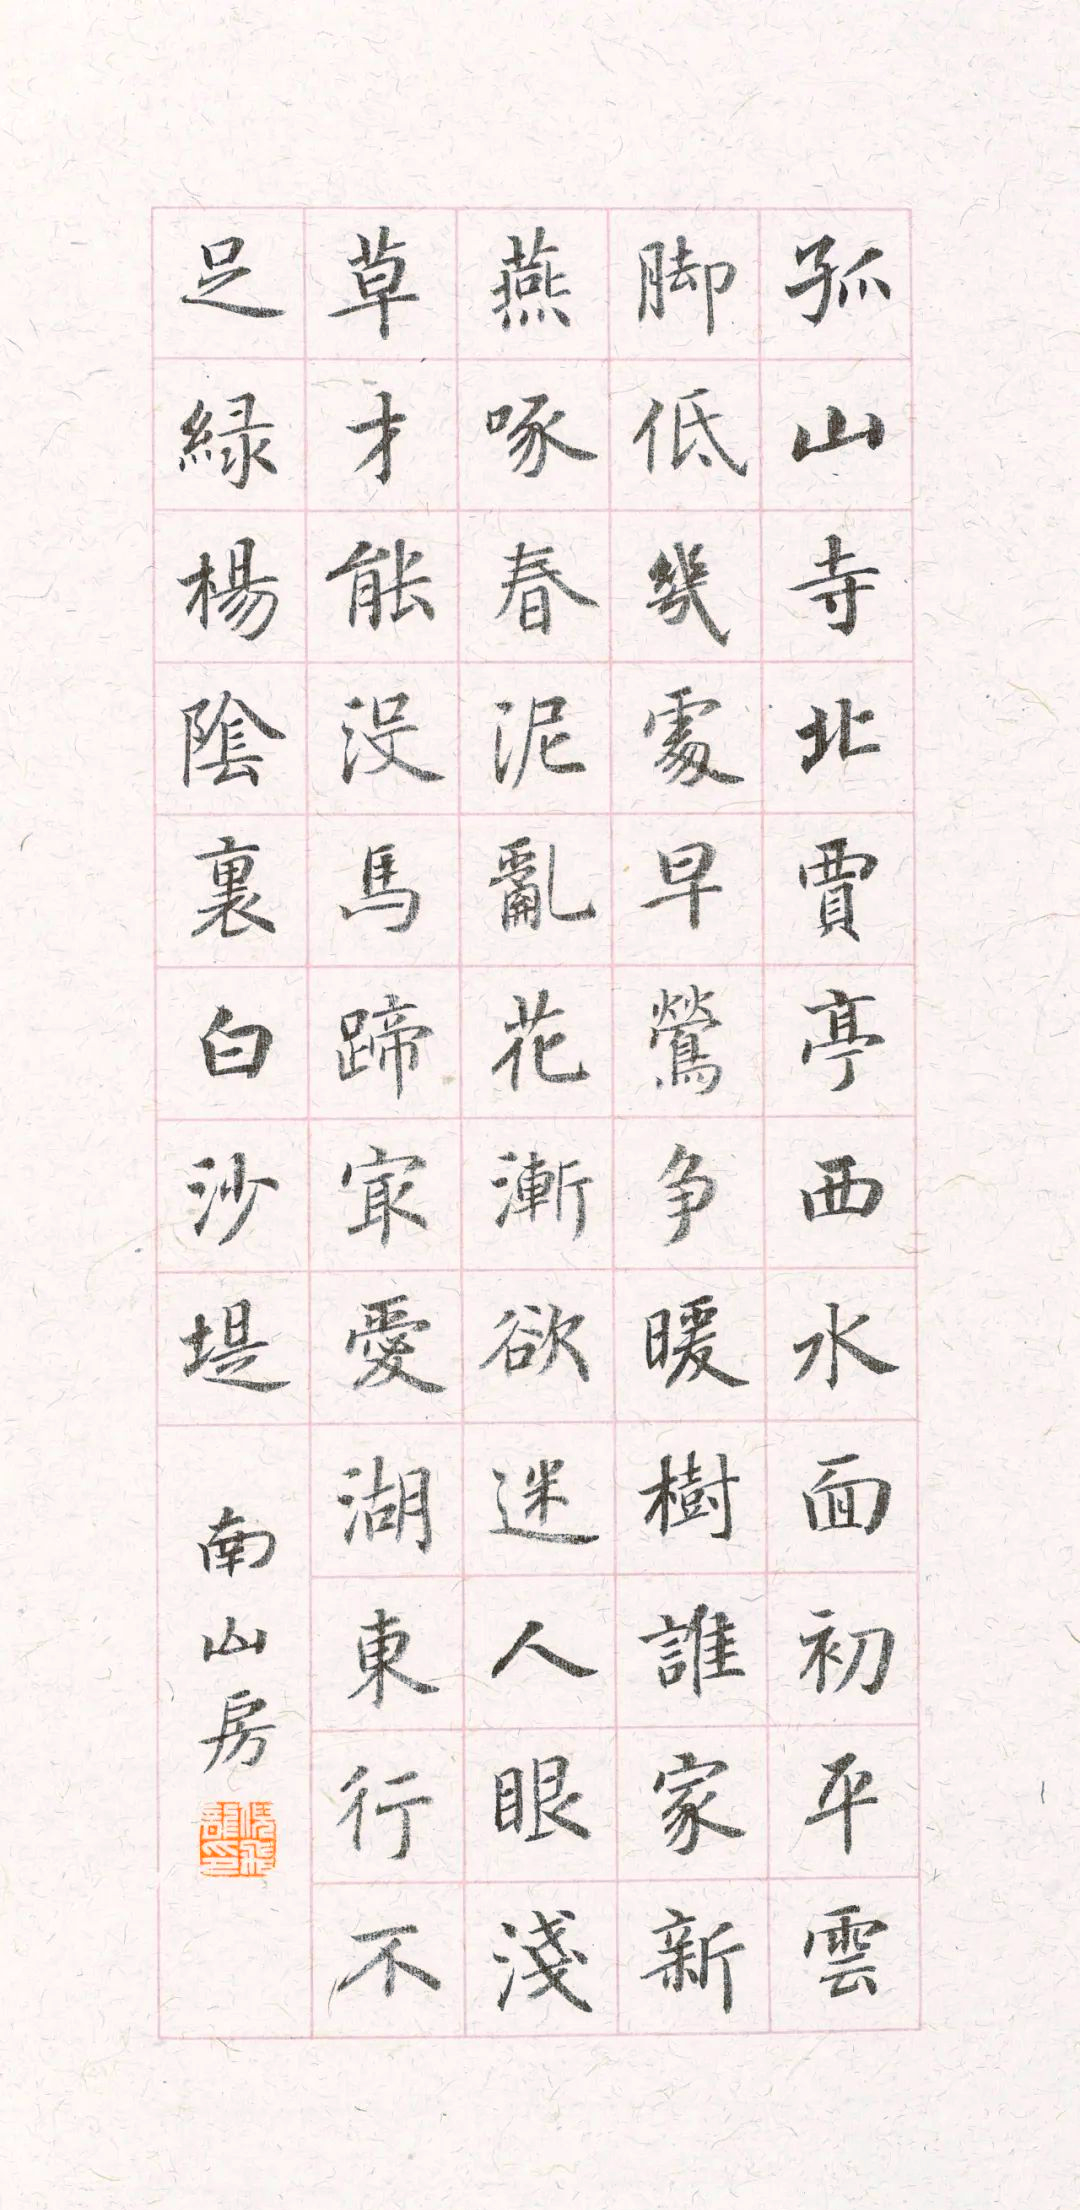 孤山寺北賈亭西水面初平雲
脚低幾處早鶯争暖樹誰家新
燕啄春泥亂花漸欲迷人眼淺
草才能没馬蹄冣愛湖東行不
足緑楊陰裏白沙堤
南山房